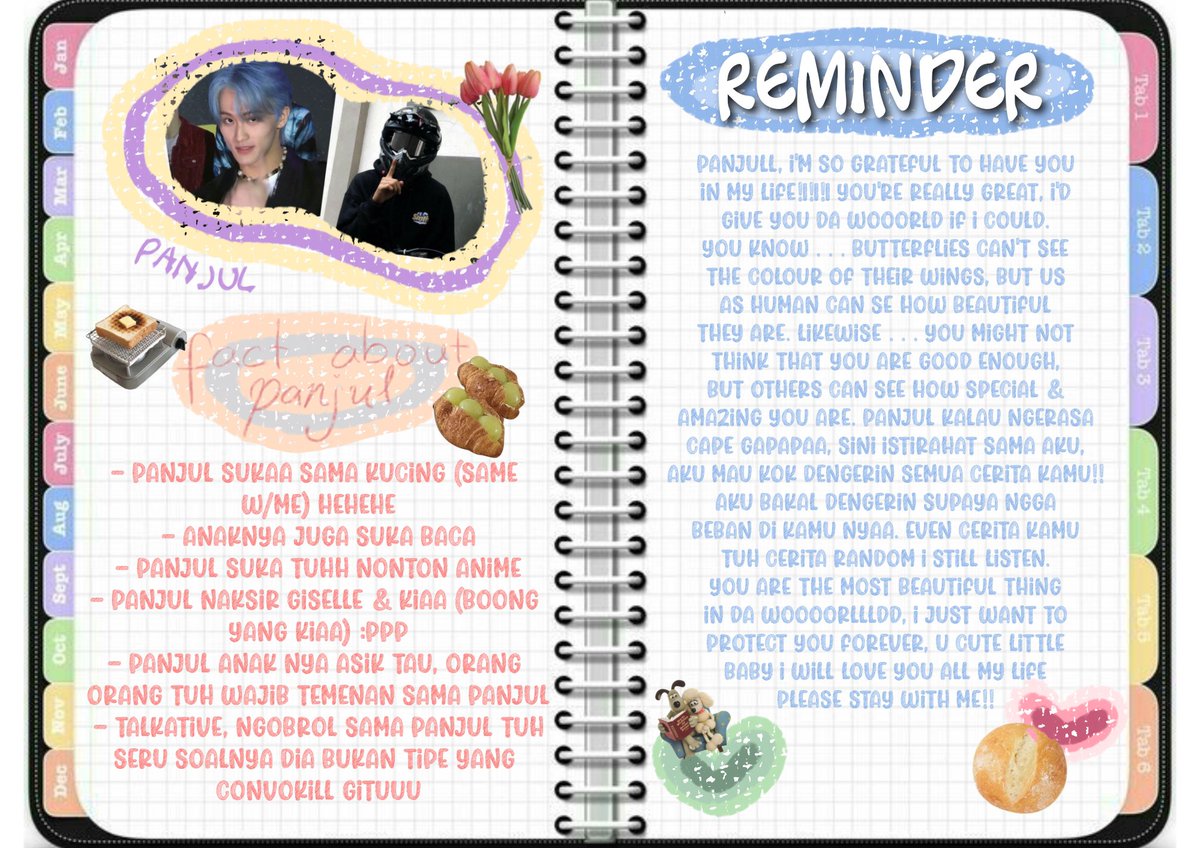 Jan
Feb
Mar
Apr
May
June
July
Aug
Sept
Oct
Nov
Dec
PANJUL
fact about
panjul
- PANJUL SUKAA SAMA KUCING (SAME
W/ME) HEHEHE
- ANAKNYA JUGA SUKA BACA
- PANJUL SUKA TUHH NONTON ANIME
- PANJUL NAKSIR GISELLE & KIAA (BOONG
YANG KIAA) :PPP
- PANJUL ANAK NYA ASIK TAU, ORANG
ORANG TUH WAJIB TEMENAN SAMA PANJUL
- TALKATIVE, NGOBROL SAMA PANJUL TUH
SERU SOALNYA DIA BUKAN TIPE YANG
CONVOKILL GITUUU
REMINDER
PANJULL, I'M SO GRATEFUL TO HAVE YOU
IN MY LIFE!!!! YOU'RE REALLY GREAT, I'D
GIVE YOU DA WOOORLD IF I COULD.
YOU KNOW . . . BUTTERFLIES CAN'T SEE
THE COLOUR OF THEIR WINGS, BUT US
AS HUMAN CAN SE HOW BEAUTIFUL
THEY ARE. LIKEWISE . . . YOU MIGHT NOT
THINK THAT YOU ARE GOOD ENOUGH,
BUT OTHERS CAN SEE HOW SPECIAL &
AMAZING YOU ARE. PANJUL KALAU NGERASA
CAPE GAPAPAA, SINI ISTIRAHAT SAMA AKU,
AKU MAU KOK DENGERIN SEMUA CERITA KAMU!!
AKU BAKAL DENGERIN SUPAYA NGGA
BEBAN DI KAMU NYAA. EVEN CERITA KAMU
TUH CERITA RANDOM I STILL LISTEN.
YOU ARE THE MOST BEAUTIFUL THING
IN DA WOOOORLLLDD, I JUST WANT TO
PROTECT YOU FOREVER, U CUTE LITTLE
BABY I WILL LOVE YOU ALL MY LIFE
PLEASE STAY WITH ME!!
Tab 1
Tab 2
Tab 3
Tab 4
Tab 5
Tab 6